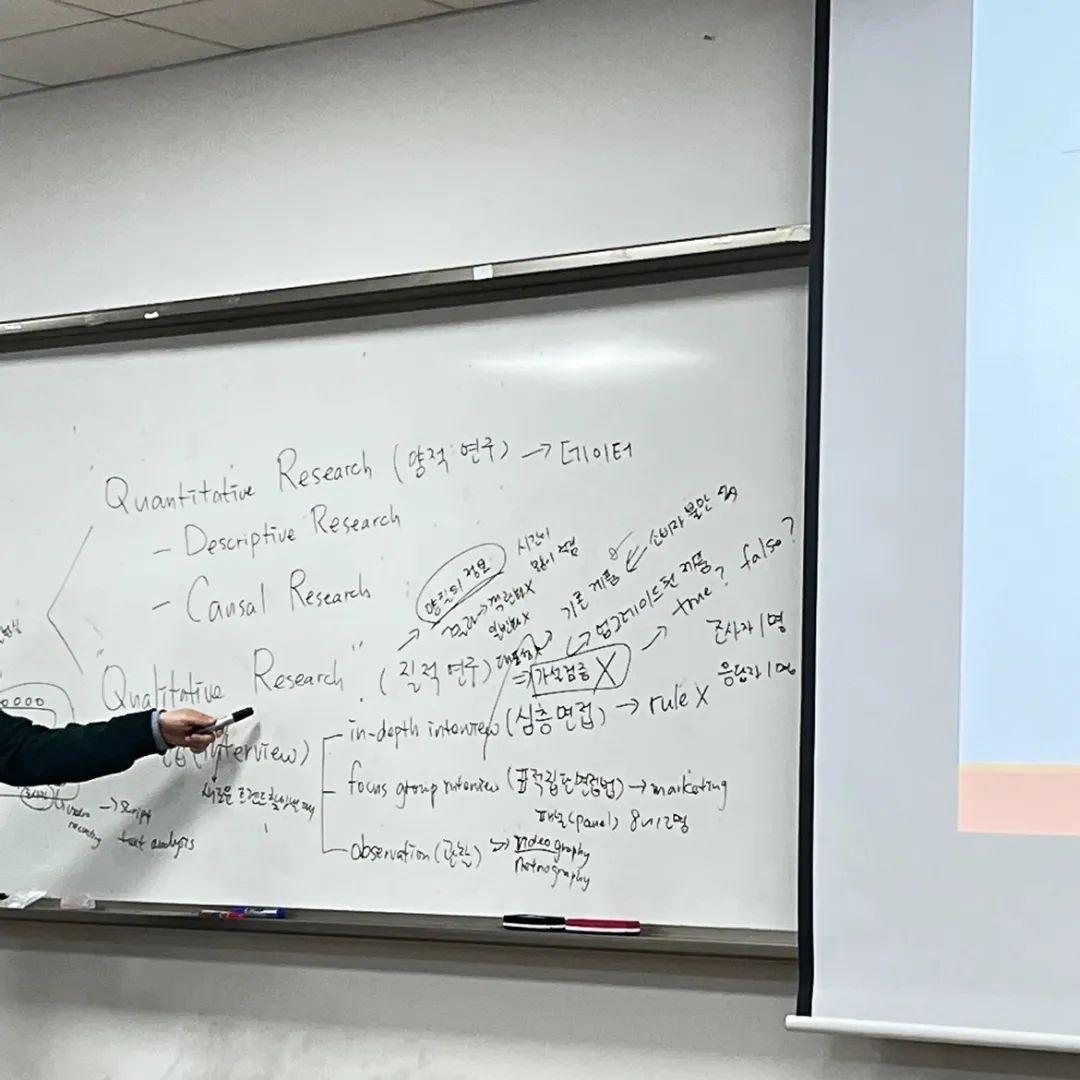 Quantitative Research (양적 연구) → 데이터
- Descriptive Research
- Causal Research
양질의 정보
시간이
많이 걸림
결과→객관화X
일반화X
대표성X
기존 제품
소비자 불만
업그레이드된 제품
true? false?
"Qualitative Research" (질적 연구)
⇒ 가설검증 X
조사자 1명
응답자 1명
in-depth interview (심층면접) → rule X
(interview)
새로운 트렌드
focus group interview (표적집단면접법) → marketing
패널(panel) 8~12명
observation (관찰) → videography
→ script
recording
text analysis